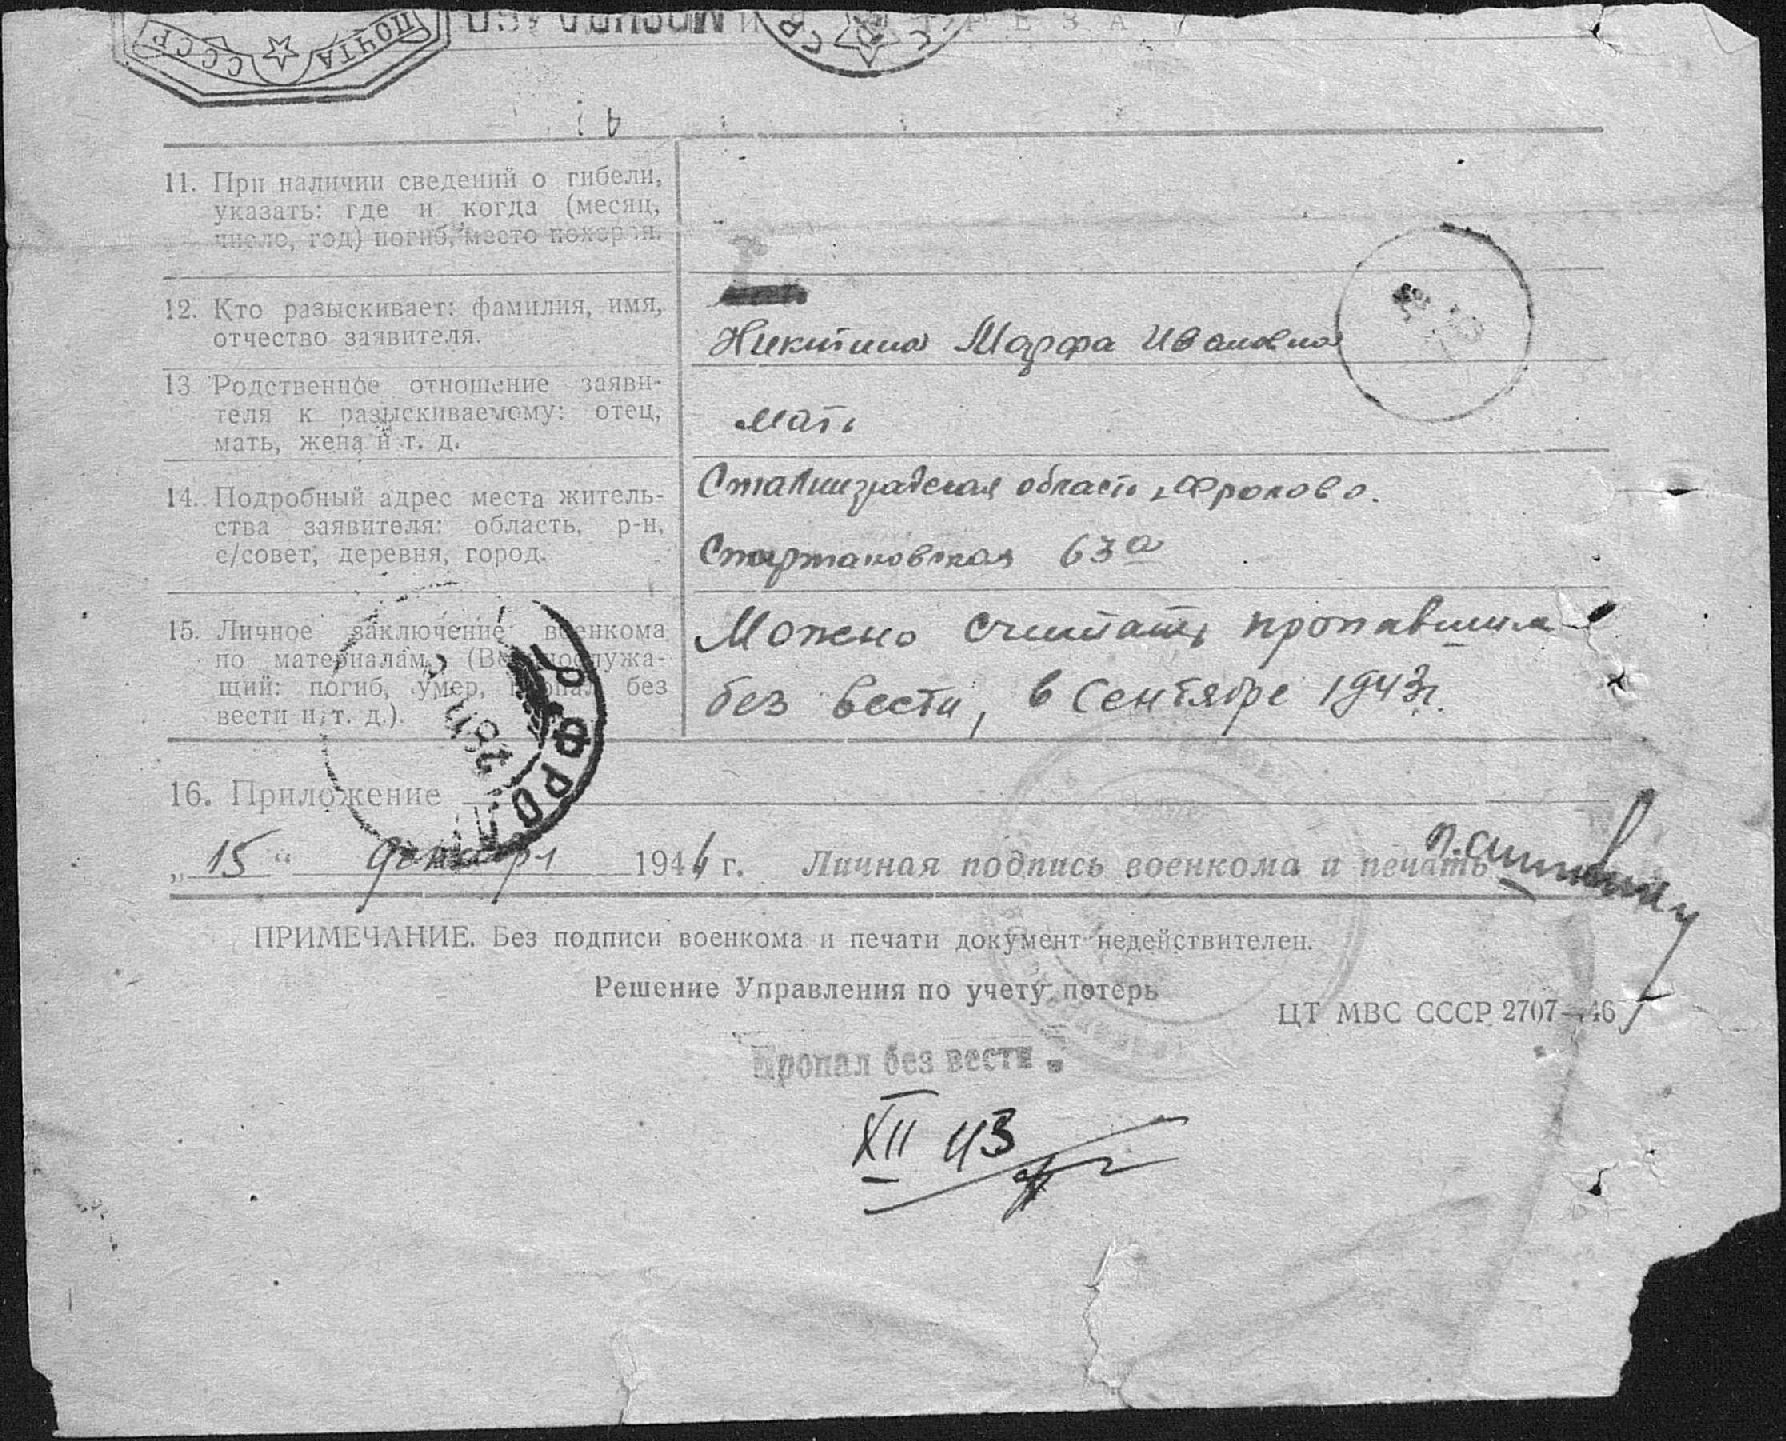 ПОЧТА СССР
11. При наличии сведений о гибели,
указать: где и когда (месяц,
число, год) погиб, место похорон.
12. Кто разыскивает: фамилия, имя,
отчество заявителя.
Никитина Марфа Ивановна
13 Родственное отношение заяви-
теля к разыскиваемому: отец,
мать, жена и т. д.
мать
14. Подробный адрес места житель-
ства заявителя: область, р-н,
с/совет, деревня, город.
Сталинградская область, Фролово.
Спартаковская 63а
15. Личное заключение военкома
по материалам. (Военнослужа-
щий: погиб, умер, пропал без
вести и т. д.).
Можно считать пропавшим
без вести, в Сентябре 1943г.
16. Приложение
„15“ декабря 1946 г. Личная подпись военкома и печать
ПРИМЕЧАНИЕ. Без подписи военкома и печати документ недействителен.
Решение Управления по учету потерь
ЦТ МВС СССР 2707—46
Пропал без вести.
XII 43